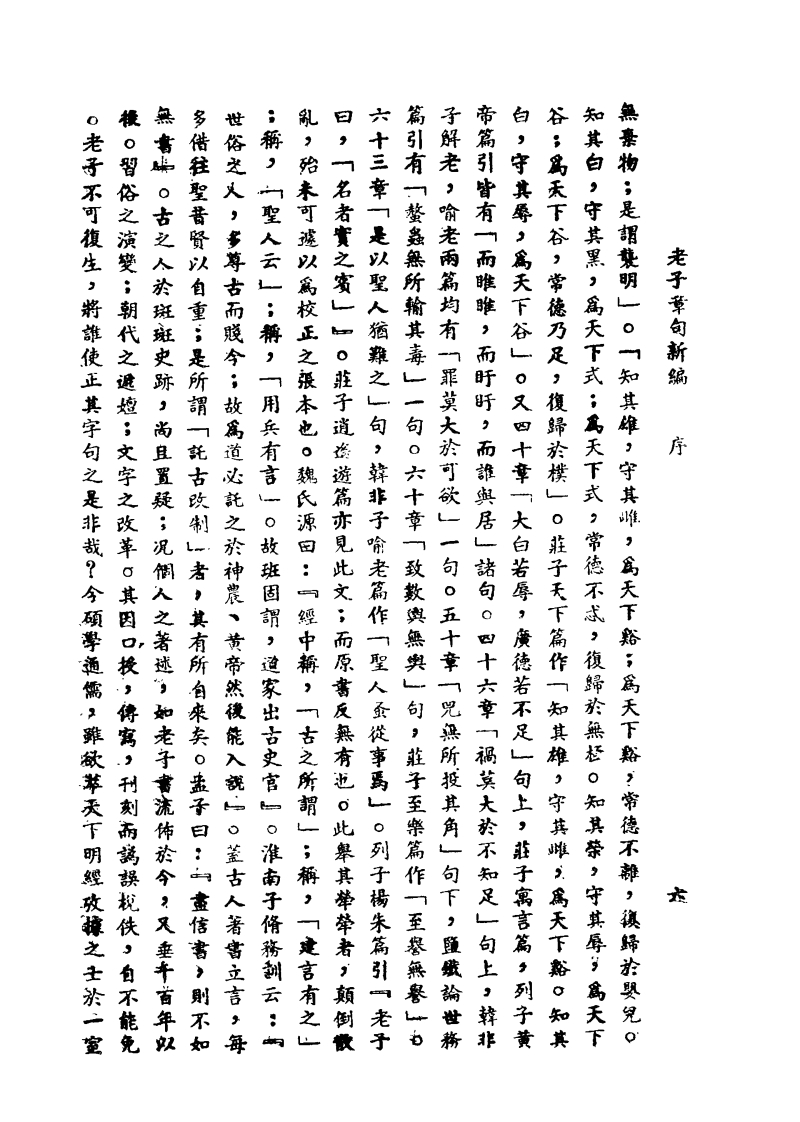 老子章句新編　　序　　六
無棄物；是謂襲明」。「知其雄，守其雌，爲天下谿；爲天下谿，常德不離，復歸於嬰兒。
知其白，守其黑，爲天下式；爲天下式，常德不忒，復歸於無極。知其榮，守其辱，爲天下
谷；爲天下谷，常德乃足，復歸於樸」。莊子天下篇作「知其雄，守其雌，爲天下谿。知其
白，守其辱，爲天下谷」。又四十章「大白若辱，廣德若不足」句上，莊子寓言篇，列子黃
帝篇引皆有「而睢睢，而盱盱，而誰與居」諸句。四十六章「禍莫大於不知足」句上，韓非
子解老，喻老兩篇均有「罪莫大於可欲」一句。五十章「兕無所投其角」句下，鹽鐵論世務
篇引有「螫蟲無所輸其毒」一句。六十章「致數輿無輿」句，莊子至樂篇作「至譽無譽」。
六十三章「是以聖人猶難之」句，韓非子喻老篇作「聖人蚤從事焉」。列子楊朱篇引『老子
曰，「名者實之賓」』。莊子逍遙遊篇亦見此文；而原書反無有也。此舉其犖犖者，顛倒散
亂，殆未可遽以爲校正之張本也。魏氏源曰：『經中稱，「古之所謂」；稱，「建言有之」
；稱，「聖人云」；稱，「用兵有言」。故班固謂，道家出古史官』。淮南子脩務訓云：『
世俗之人，多尊古而賤今；故爲道必託之於神農、黃帝然後能入說』。蓋古人著書立言，每
多借往聖昔賢以自重；是所謂「託古改制」者，其有所自來矣。孟子曰：『盡信書，則不如
無書』。古之人於斑斑史跡，尚且置疑；況個人之著述，如老子書流佈於今，又垂千百年以
後。習俗之演變；朝代之遞嬗；文字之改革。其因口授，傳寫，刊刻而譌誤梲佚，自不能免
。老子不可復生，將誰使正其字句之是非哉？今碩學通儒，雖欲萃天下明經攷據之士於一室